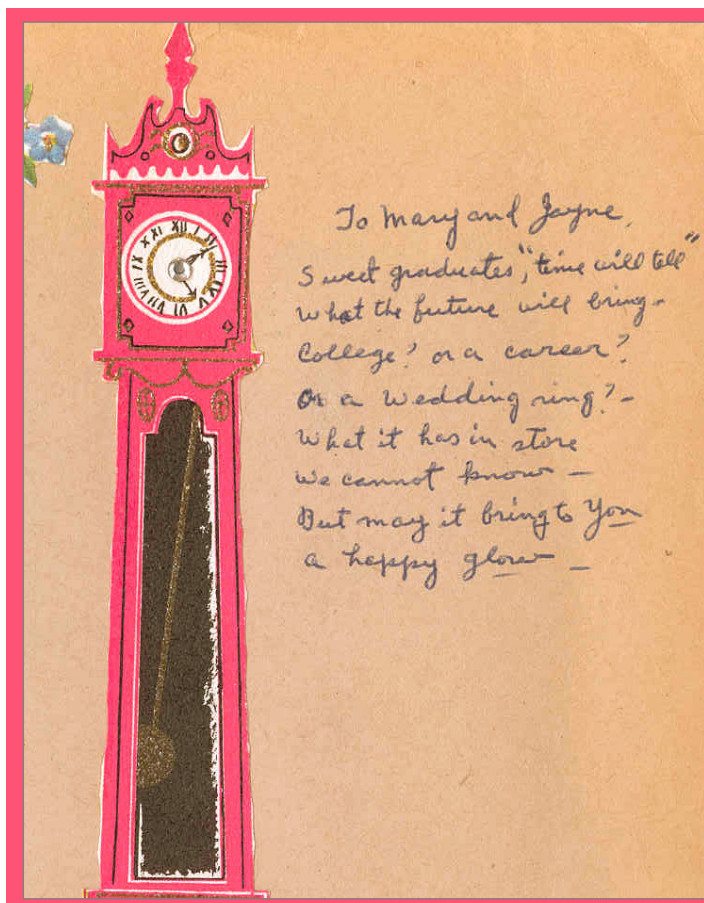 To Mary and Jayne,
Sweet graduates, "time will tell"
What the future will bring -
College? or a career?
Or a wedding ring? -
What it has in store
We cannot know -
But may it bring to You
a happy glow -
XII I II III IV V VI VII VIII IX X XI